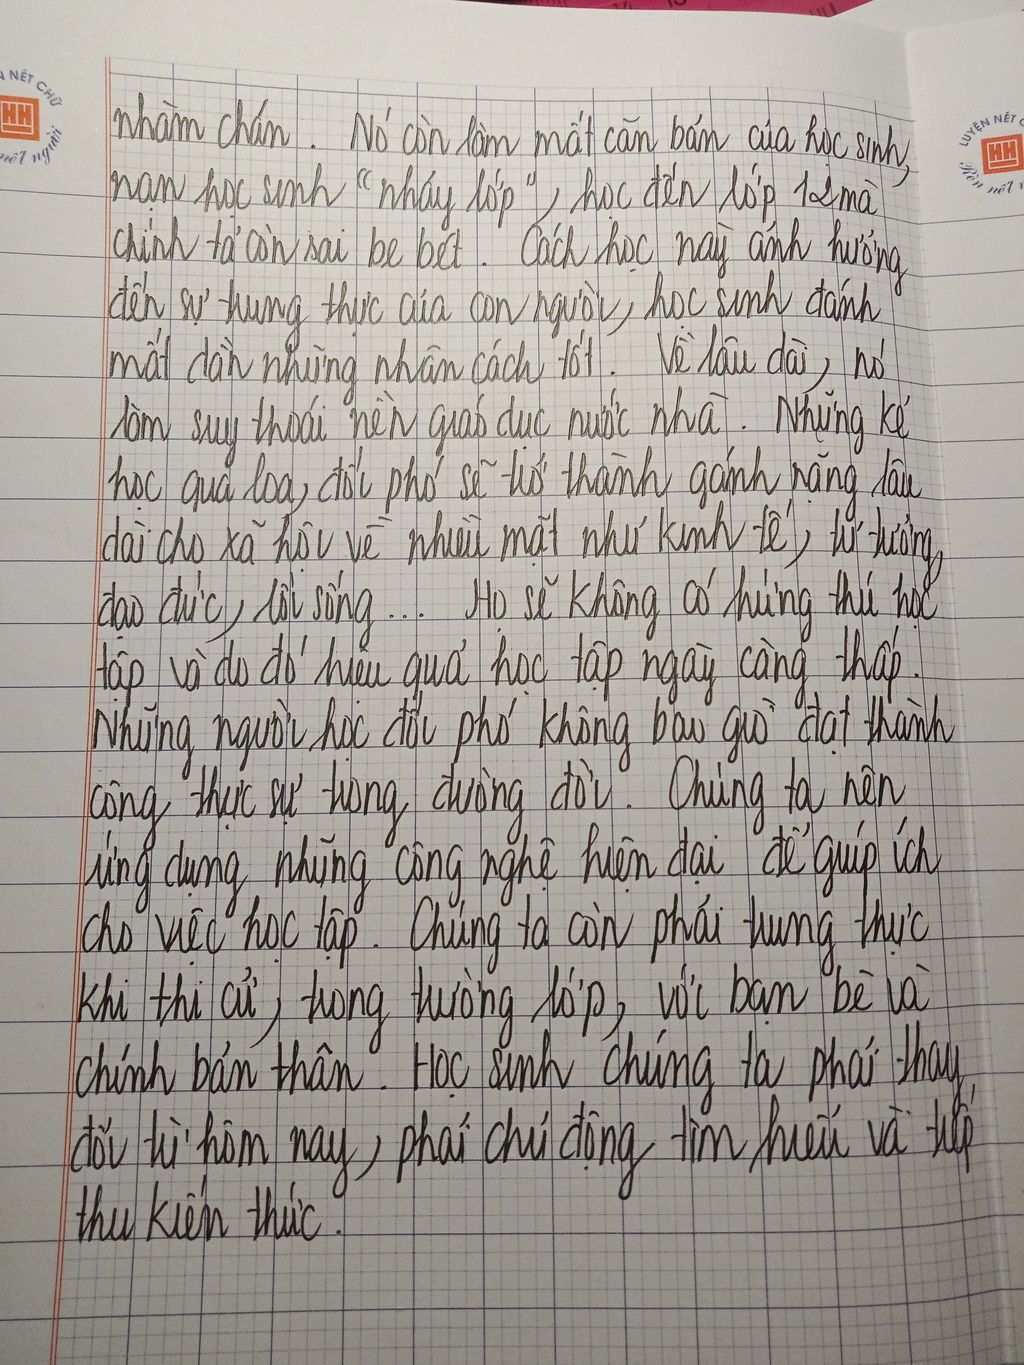 LUYỆN NÉT CHỮ
HH
nhàm chán. Nó còn làm mất căn bản của học sinh,
nạn học sinh "nhảy lớp", học đến lớp 12 mà
chính tả còn sai be bét. Cách học này ảnh hưởng
đến sự trung thực của con người, học sinh đánh
mất dần những nhân cách tốt. Về lâu dài, nó
làm suy thoái nền giáo dục nước nhà. Những kẻ
học qua loa, đối phó sẽ trở thành gánh nặng lâu
dài cho xã hội về nhiều mặt như kinh tế, tư tưởng,
đạo đức, lối sống... Họ sẽ không có hứng thú học
tập và do đó hiệu quả học tập ngày càng thấp.
Những người học đối phó không bao giờ đạt thành
công thực sự trong đường đời. Chúng ta nên
ứng dụng những công nghệ hiện đại để giúp ích
cho việc học tập. Chúng ta còn phải trung thực
khi thi cử, trong trường lớp, với bạn bè và
chính bản thân. Học sinh chúng ta phải thay
đổi từ hôm nay, phải chủ động tìm hiểu và tiếp
thu kiến thức.
LUYỆN NÉT C
HH
Rèn nết